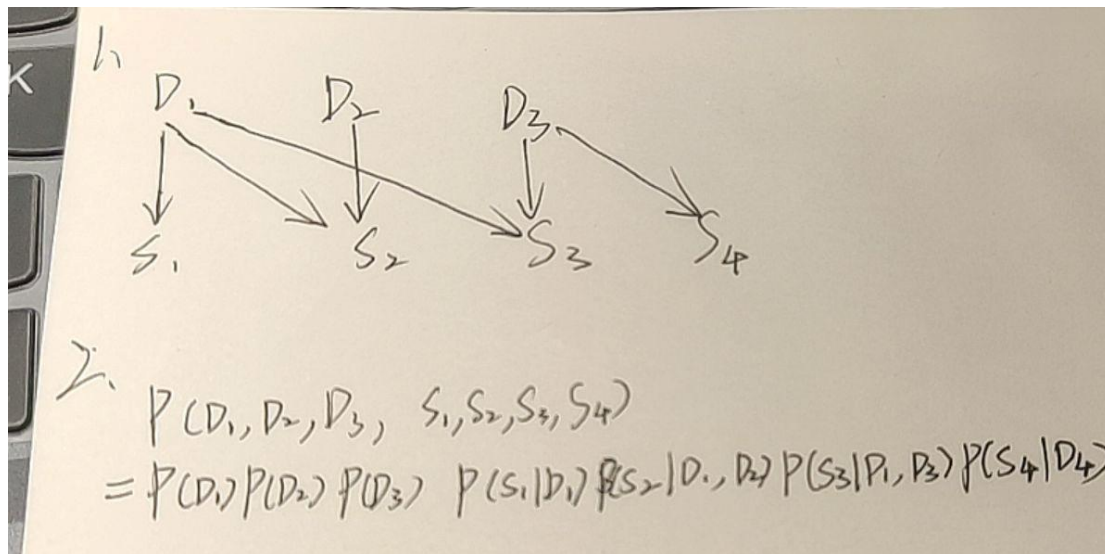 K
1.
D₁ D₂ D₃
S₁ S₂ S₃ S₄
2.
P(D₁,D₂,D₃, S₁,S₂,S₃,S₄)
=P(D₁)P(D₂)P(D₃) P(S₁|D₁)P(S₂|D₁,D₂)P(S₃|D₁,D₃)P(S₄|D₄)